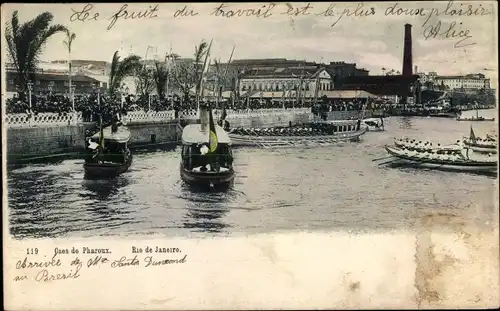 Le fruit du travail est le plus doux plaisir
Alice
119 Caes do Pharoux. Rio de Janeiro.
Arrivée de Mr Santos Dumond
au Bresil